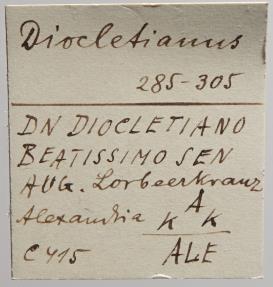 Diocletianus
285-305
DN DIOCLETIANO
BEATISSIMO SEN
AUG. Lorbeerkranz
Alexandria K A K
C 415 ALE